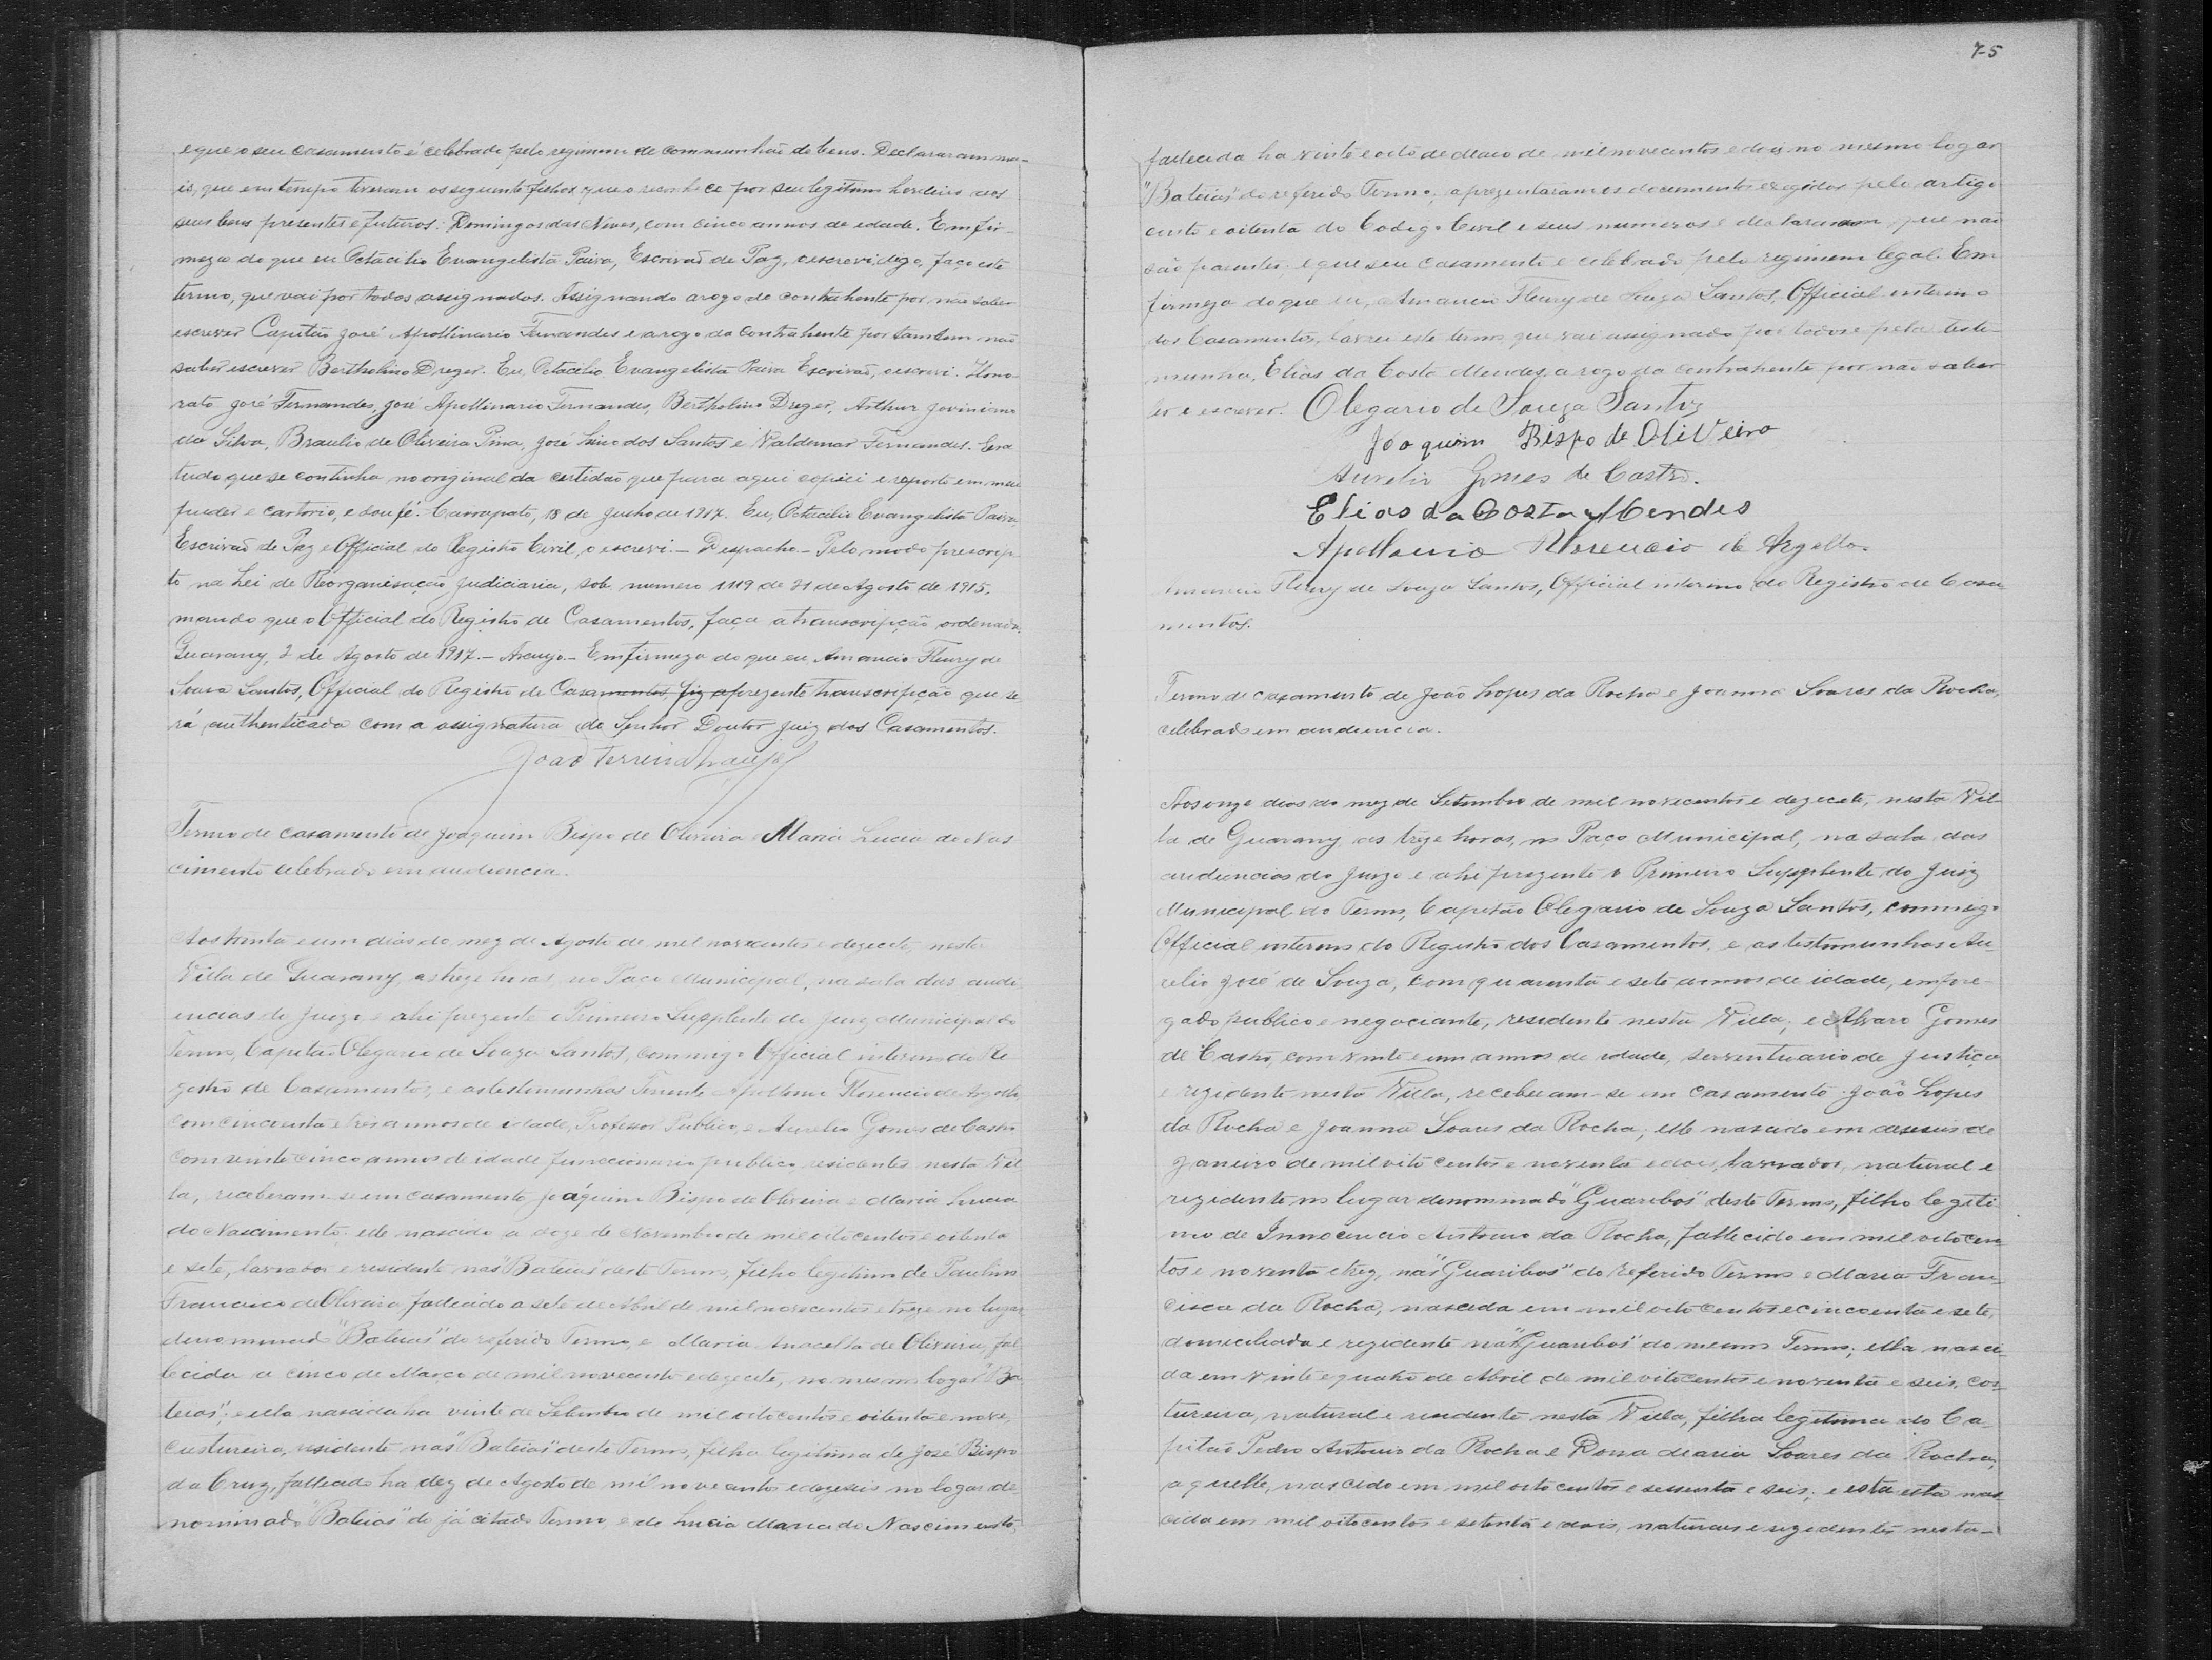 e que o seu casamento é celebrado pelo regimem de communhão de bens. Declararam ma-
is, que em tempo tiveram os seguinte filhos que o reconhece por seu legitimo herdeiro aos
seus bens presentes e futuros: Domingos das Neves, com cinco annos de edade. Em fir-
meza do que eu Octacilio Evangelista Paiva, Escrivaõ de Paz, o escrevi digo, faço este
termo, que vai por todos assignados. Assignando a rogo do contrahente por não saber
escrever Capitão José Apollinario Fernandes e a rogo da contrahente por tambem não
saber escrever Bertholino Dreger. Eu, Octacilio Evangelista Paiva Escrivaõ, o escrevi. Hono-
rato José Fernandes, José Apollinario Fernandes, Bertholino Dreger, Arthur Joviniano
da Silva, Braulio de Oliveira Pina, José Lino dos Santos e Valdemar Fernandes. Era
tudo que se continha no original da certidão que para aqui copiei e reporto em meu
puder e cartorio, e dou fé. Carrapato, 18 de Julho de 1917. Eu, Octacilio Evangelista Paiva
Escrivaõ de Paz e Official do Registro Civil, o escrevi. — Despacho — Pelo modo prescrip-
to na Lei de Reorganisação Judiciaria, sob numero 1119 de 21 de Agosto de 1915,
mando que o Official do Registro de Casamentos, faça a transcripção ordenada.
Guarany, 2 de Agosto de 1917. — Araujo — Em firmeza do que eu, Amancio Fleury de
Souza Santos, Official do Registro de Casamentos, fiz a prezente transcripção que se-
rá authenticada com a assignatura do Senhor Doutor Juiz dos Casamentos.
João Ferreira Araujo
Termo de casamento de Joaquim Bispo de Oliveira e Maria Lucia do Nas-
cimento celebrado em audiencia.
Aos trinta e um dias do mez de Agosto de mil novecentos e dezecete, nesta
Villa de Guarany, as treze horas, no Paço Municipal, na sala das audi-
encias do Juizo e ahi prezente o Primeiro Supplente do Juiz Municipal do
Termo, Capitão Olegario de Souza Santos, commigo Official interino do Re-
gistro de Casamentos, e as testemunhas Tenente Apollonio Florencio de Argollo
com cincoenta e tres annos de idade, Professor Publico, e Aurelio Gomes de Castro
com vinte cinco annos de idade funccionario publico, residentes nesta Vil-
la, receberam-se em casamento Joaquim Bispo de Oliveira e Maria Lucia
do Nascimento; elle nascido a doze de Novembro de mil oitocentos e oitenta
e sete, lavrador e residente nas "Bateias" deste Termo, filho legitimo de Paulino
Francisco de Oliveira, fallecido a sete de Abril de mil novecentos e treze no lugar
denominado "Bateias" do referido Termo, e Maria de Oliveira, fal-
lecida a cinco de Março de mil novecentos e dezecete, no mesmo logar "Ba-
teias"; e ella nascida ha vinte de Setembro de mil oitocentos e oitenta e nove,
custureira, residente nas "Bateias" deste Termo, filha legitima de José Bispo
da Cruz, fallecido ha dez de Agosto de mil novecentos e dezeseis no logar de-
nominado "Bateias" do já citado Termo, e de Lucia Maria do Nascimento,
75
fallecida ha vinte e oito de Maio de mil novecentos e dois no mesmo logar
"Bateias" do referido Termo; aprezentaram os documentos exigidos pelo artigo
cento e oitenta do Codigo Civil e seus numeros e declararam que não
são parentes e que seu casamento e celebrado pelo regimem legal. Em
firmeza do que eu, Amancio Fleury de Souza Santos, Official interino
dos Casamentos, lavrei este termo que vai assignado por todos e pela teste-
munha, Elias da Costa Mendes a rogo da contrahente por não saber
ler e escrever. Olegario de Souza Santos
Joaquim Bispo de OliVeira
Aurelio Gomes de Castro.
Elias da Costa Mendes
Apollonio Florencio de Argollo.
Amancio Fleury de Souza Santos, Official interino do Registro de Casa-
mentos.
Termo de casamento de João Lopes da Rocha e Joanna Soares da Rocha,
celebrado em audiencia.
Aos onze dias do mez de Setembro de mil novecentos e dezecete, nesta Vil-
la de Guarany as treze horas, no Paço Municipal, na sala das
audiencias do Juizo e ahi prezente o Primeiro Supplente do Juiz
Municipal do Termo, Capitão Olegario de Souza Santos, commigo
Official interino do Registro dos Casamentos, e as testemunhas Au-
relio José de Souza, com quarenta e sete annos de idade, empre-
gado publico e negociante, residente nesta Villa; e Alvaro Gomes
de Castro, com vinte e um annos de idade, serventuario de Justiça
e rezidente nesta Villa, receberam-se em casamento: João Lopes
da Rocha e Joanna Soares da Rocha; elle nascido em deseseis de
Janeiro de mil oito centos e noventa e dois, lavrador, natural e
rezidente no lugar denominado "Guaribas" deste Termo, filho legiti-
mo de Innocencio Antonio da Rocha, fallecido em mil oitocen-
tos e noventa e trez, nas "Guaribas" do referido Termo e Maria Fran-
cisca da Rocha, nascida em mil oito centos e cincoenta e sete,
domiciliada e rezidente nas "Guaribas" do mesmo Termo; ella nasci-
da em vinte e quatro de Abril de mil oitocentos e noventa e seis, cos-
tureira, natural e residente nesta Villa, filha legitima do Ca-
pitão Pedro Antonio da Rocha e Dona Maria Soares da Rocha,
aquelle, nascido em mil oito centos e sessenta e seis; e esta esta nas-
cida em mil oitocentos e setenta e dois, naturaes e rezidentes nesta